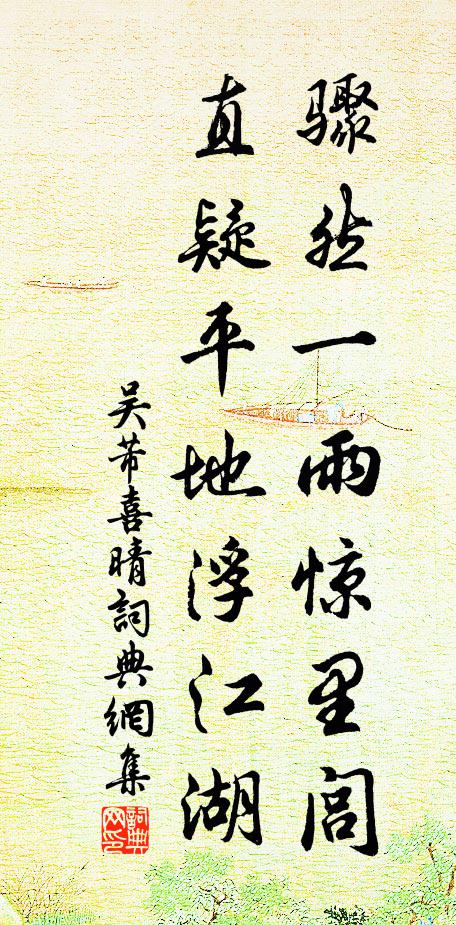 骤然一雨惊里闾
直疑平地浮江湖
吴芾喜晴詞典網集
詞典網印